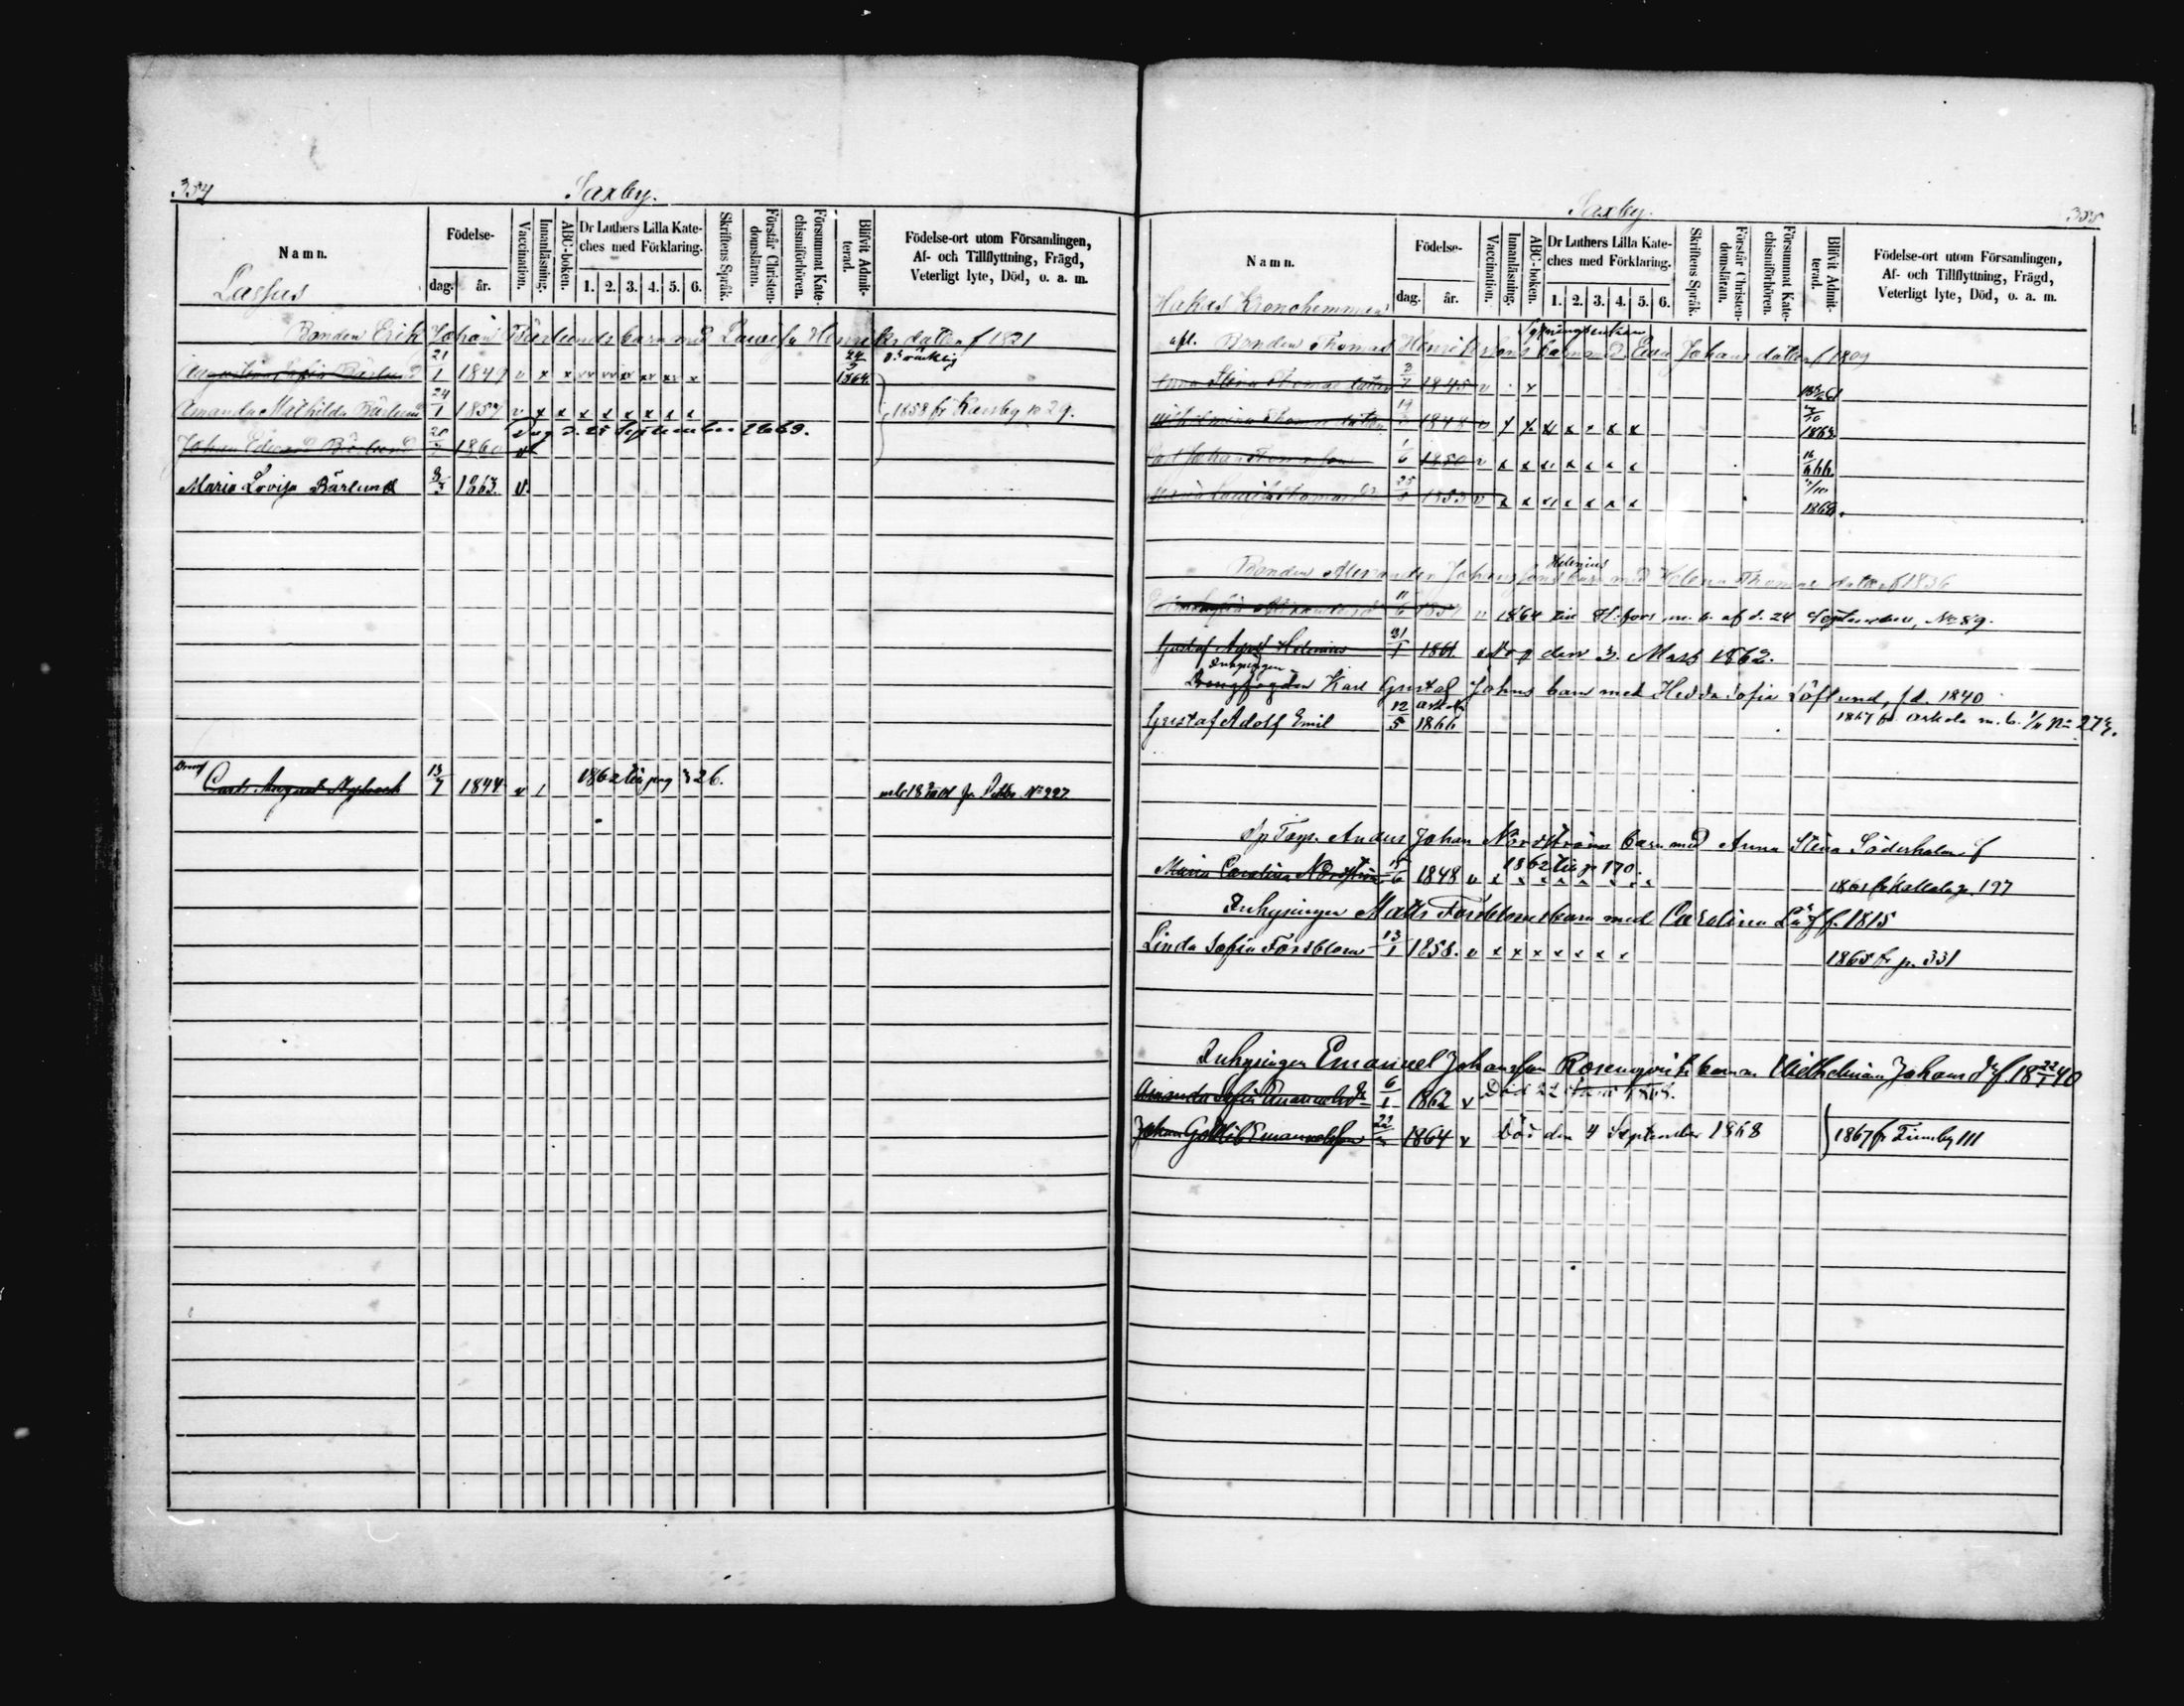 354
Saxby.
Namn.
Födelse-
dag. år.
Vaccination.
Innanläsning.
ABC-boken.
Dr Luthers Lilla Kate-
ches med Förklaring.
1. 2. 3. 4. 5. 6.
Skriftens Språk.
Förstår Christen-
domsläran.
Försummat Kate-
chismiförhören.
Blifvit Admit-
terad.
Födelse-ort utom Församlingen,
Af- och Tillflyttning, Frägd,
Veterligt lyte, Död, o. a. m.
Lassus
Bonden Erik Johan Bärlunds barn med Lovisa Henriksdotter f 1821
Augustina Sofia Bärlund 21/1 1849 v x x xv xv xv xv xv x 24/5 1864
Amanda Mathilda Bärlund 24/1 1857 v x x x x x x x x 1858 fr Karsby p 29.
Johan Edvard Bärlund 1860 v Dog d. 25 September 1869.
Maria Lovisa Bärlund 8/3 1863 v.
Dreng
Carl August Nybeck 13/7 1844 v / 1862 till pag 326. No 227
Saxby.
355
Namn.
Födelse-
dag. år.
Vaccination.
Innanläsning.
ABC-boken.
Dr Luthers Lilla Kate-
ches med Förklaring.
1. 2. 3. 4. 5. 6.
Skriftens Språk.
Förstår Christen-
domsläran.
Försummat Kate-
chismiförhören.
Blifvit Admit-
terad.
Födelse-ort utom Församlingen,
Af- och Tillflyttning, Frägd,
Veterligt lyte, Död, o. a. m.
Hakas
afl. Bonden Thomas Henrikssons barn med Eva Johansdotter f 1809
Anna Stina Thomasdotter 1845 v x
Wilhelmina Thomasdotter 1848 v x x x x x x x 1863
Carl Johan Thomasson 1/6 1850 v x x x x x x x
Maria Lovisa Thomasd 25 1853 v x x x x x x x 1868.
Helenius
Bonden Alexander Johanssons barn med Helena Thomasdotter f 1836
1857 v 1864 till H:fors m. b. af d. 24 September, No 89.
Gustaf August Helenius 31/1 1861 dog den 3. Mars 1862.
Inhysingen
Drengfogden Karl Gustaf Johns barn med Hedda Sofia Löflund, f. d. 1840
Gustaf Adolf Emil 12/5 Askola 1866 1867 fr. Askola m. b.
Anders Johan Nordströms barn med Anna Stina Söderholm f
Maria Carolina Nordström 15/6 1848 v x 1862 till p 170. 1861 fr p. 197
Inhysingen Matts Forsbloms barn med Carolina Löf f. 1815
Linda Sofia Forsblom 13/1 1858. v x x x x x x x 1865 fr p. 331
Inhysingen Emanuel Johansson Rosenqvists barn m Wilhelmina Johansd r f. 18 22/1 40
Amanda Sofia Emanuelsdr 6/1 1862 v Död 22 1868.
Johan Gottlib Emanuelsson 22 1864 v Död den 4 September 1868 1867 fr Finnby 111